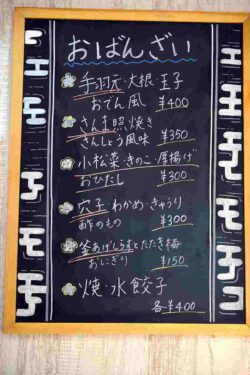 おばんざい
手羽元・大根・玉子
おでん風 ¥400
さんま照焼き
さんしょう風味 ¥350
小松菜・きのこ・厚揚げ
おひたし ¥300
穴子・わかめ・きゅうり
酢のもの ¥300
釜あげしらすとたたき梅
おにぎり ¥150
焼・水餃子
各¥400